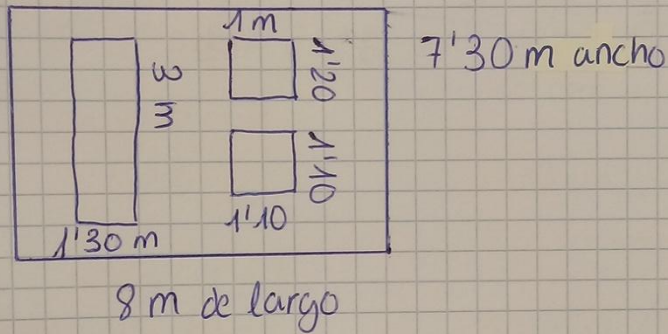 1m
1'20
7'30 m ancho
3 m
1'10
1'10
1'30 m
8 m de largo